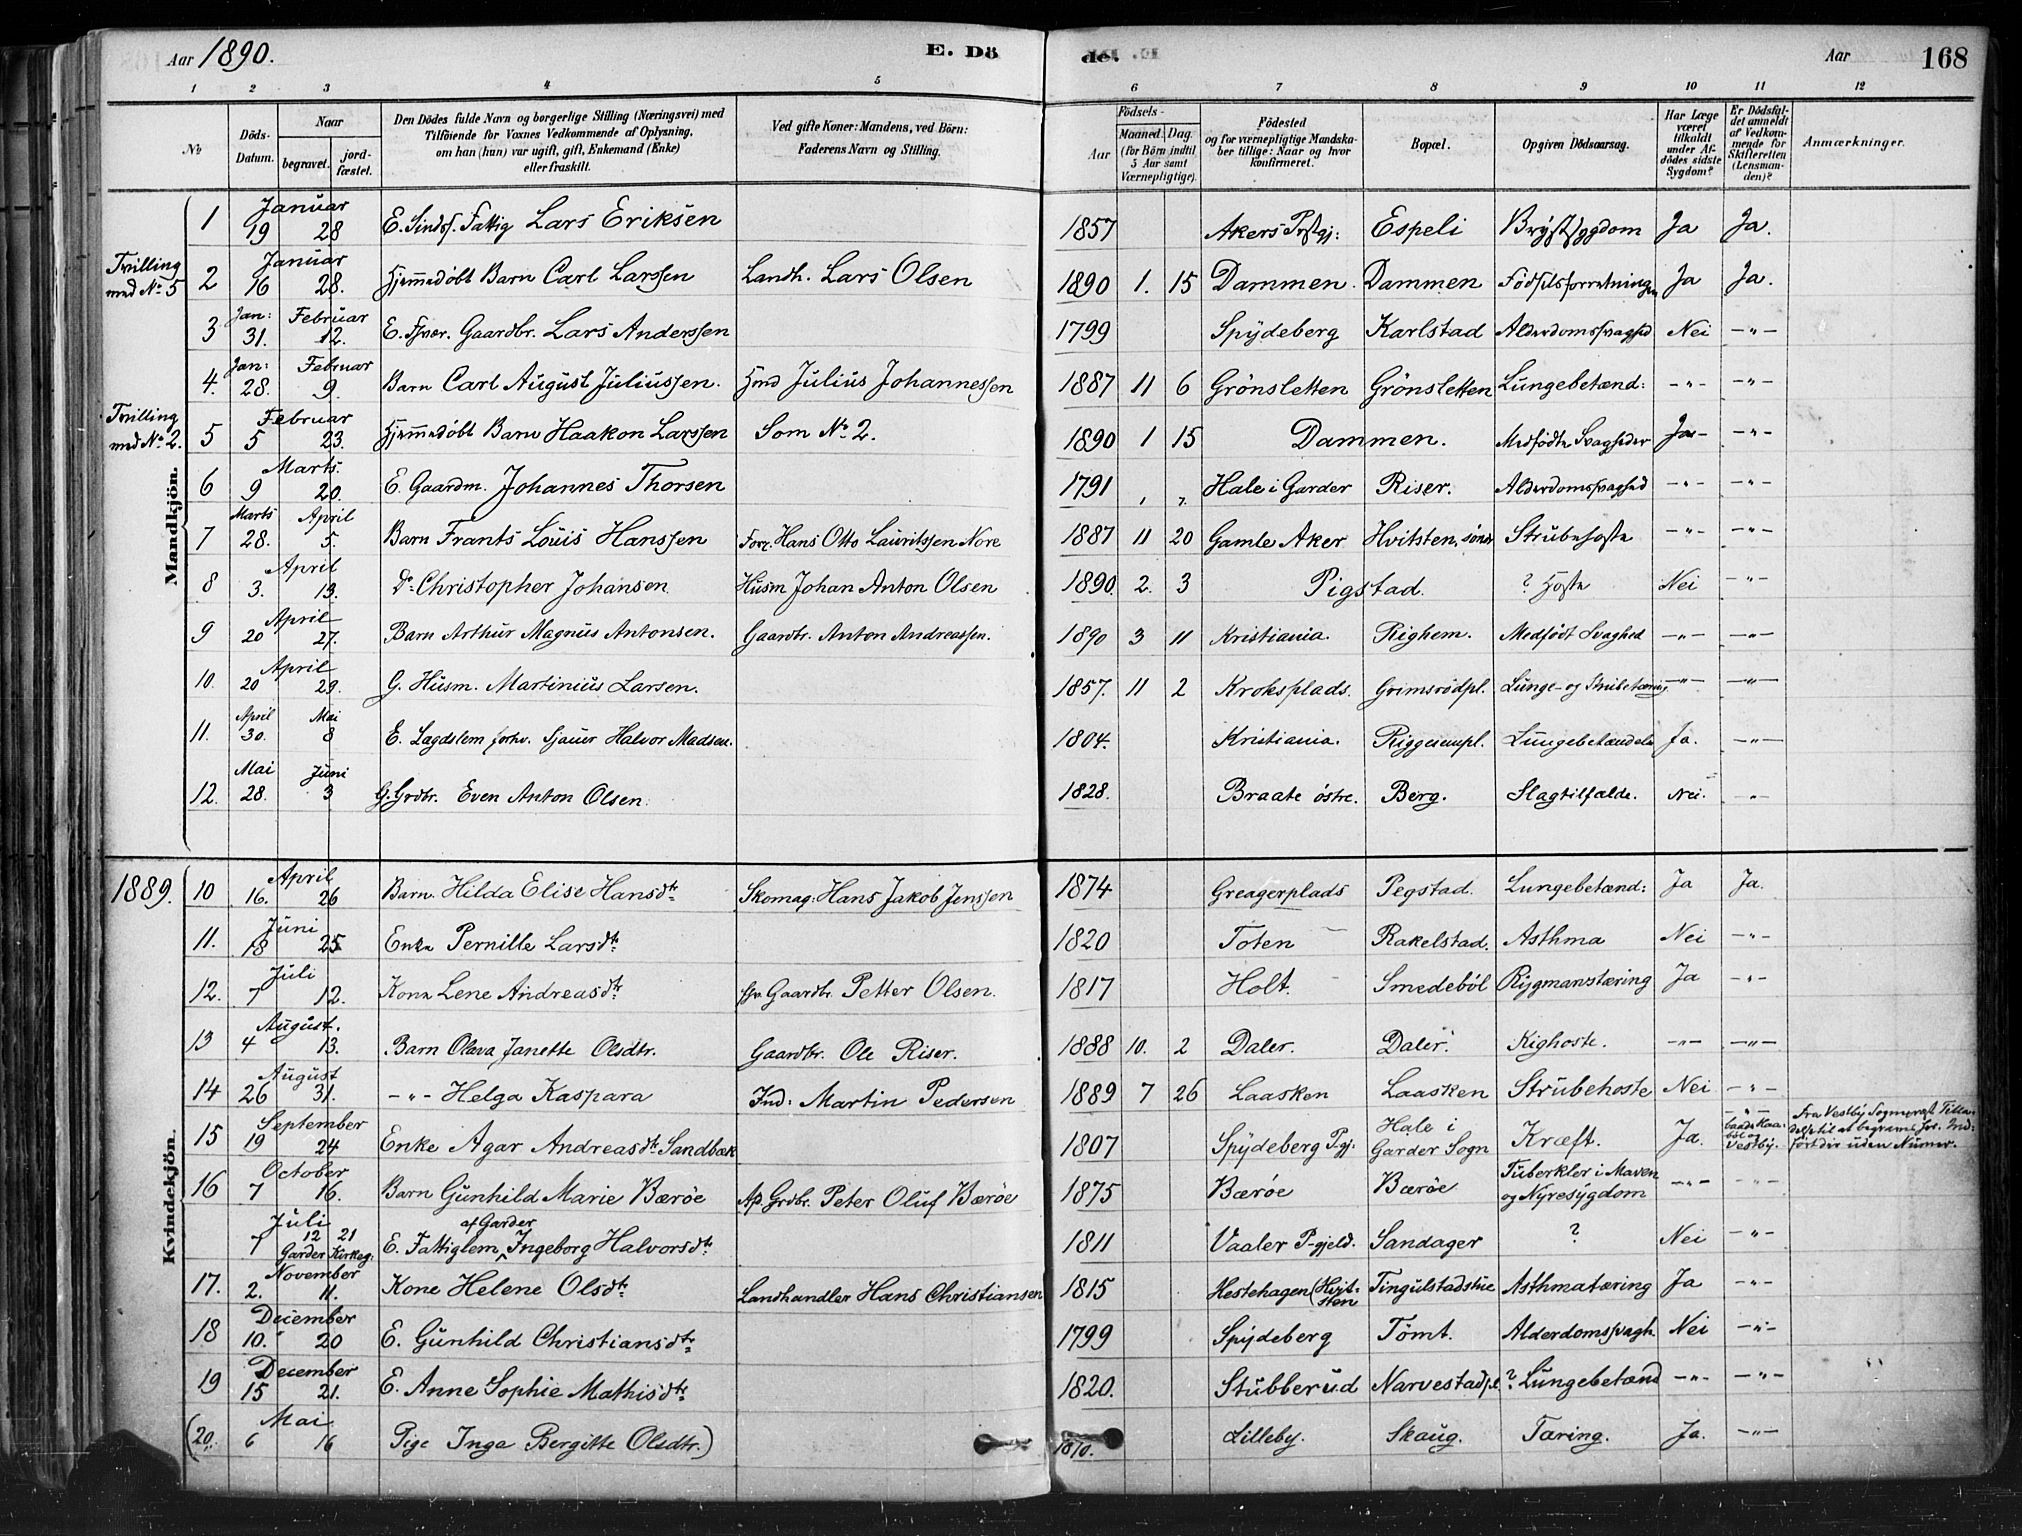 Aar 1890. E. Dö de. Aar 168
1 2 3 4 5 6 7 8 9 10 11 12
No Döds-Datum. Naar begravet. jordfæstet. Den Dödes fulde Navn og borgerlige Stilling (Næringsvei) med Tilföiende for Voxnes Vedkommende af Oplysning, om han (hun) var ugift, gift, Enkemand (Enke) eller fraskilt. Ved gifte Koner: Mandens, ved Börn: Faderens Navn og Stilling. Födsels- Aar Maaned. Dag. (for Börn indtil 5 Aar samt Værnepligtige). Födested og for værnepligtige Mandskaber tillige: Naar og hvor konfirmeret. Bopæl. Opgiven Dödsaarsag. Har Læge været tilkaldt under Afdödes sidste Sygdom? Er Dödsfaldet anmeldt af Vedkommende for Skifteretten (Lensmanden)? Anmærkninger.
Mandkjön.
1 Januar 19 28 E. Sindss. Fattig Lars Eriksen 1857 Akers Prstgj: Espeli Brystsygdom Ja Ja.
Tvilling med No 5 2 Januar 16 28. Hjemmedøbt Barn Carl Larssen Landh. Lars Olsen 1890 1. 15 Dammen. Dammen Fødselsforretningen Ja Ja.
3 Jan: 31. Februar 12. E. Gaardbr. Lars Anderssen 1799 Spydeberg Karlstad Alderdomssvaghed Nei -"-
4. Jan: 28. Februar 9. Barn Carl August Juliussen. Hmd Julius Johannessen 1887 11 6 Grönsletten Grönsletten Lungebetænd: -"- -"-
Tvilling med No 2. 5 Februar 5 23. Hjemmedøbt Barn Haakon Larssen Som No 2. 1890 1 15 Dammen. Medfødte Svagheder Ja- -"-
6 Marts. 9 20. E. Gaardm. Johannes Thorsen 1791 Hale i Garder Riser. Alderdomssvaghed -"- -"-
7 Marts 28. April 5. Barn Frants Louis Hanssen Hans Otto Lauritssen Nore 1887 11 20 Gamle Aker Hvitsten, søndr Strubehoste -"- -"-
8 April 3. 13. Do Christopher Johansen. Husm Johan Anton Olsen 1890. 2. 3 Pigstad. ? Hoste Nei -"-
9 April 20 27. Barn Arthur Magnus Antonsen. Gaardbr. Anton Andreassen. 1890 3 11 Kristiania. Righem. Medfödt Svaghed -"- -"-
10. April 20 29. G. Husm. Martinius Larsen. 1857. 11 2 Kroksplads. Grimsrödpl. Lunge- og Strubetæring -"- -"-
11. April 30. Mai 8 E. Lagdslem forhv. Sjauer Halvor Madsen. 1804. Kristiania. Riggesumpl. Lungebetændelse Ja. -"-
12. Mai 28. Juni 3 G. Grdbr. Even Anton Olsen. 1828. Braate östre. Berg. Slagtilfælde. Nei. -"-
1889.
Kvindekjön.
10 April 16. 26 Barn. Hilda Elise Hansdtr Skomag: Hans Jakob Jenssen 1874 Greagerplads Pegstad. Lungebetænd: Ja Ja.
11. Juni 18 25 Enke Pernille Larsdtr 1820 Toten Rakelstad. Asthma Nei -"-
12. Juli 7 12. Kone Lene Andreasdtr Gaardbr. Petter Olsen. 1817 Holt. Smedeböl Rygmarvstæring Ja -"-
13 August. 4 13. Barn Olava Janette Olsdtr. Gaardbr. Ole Riser. 1888 10. 2 Daler. Daler. Kighoste. -"- -"-
14 August 26 31. -"- Helga Kaspara Ind: Martin Pedersen 1889 7 26 Laasken Laasken Strubehoste Nei -"-
15 September 19 24 Enke Agar Andreasdtr Sandbæk 1807 Spydeberg P.gj. Hale i Garder Sogn Kræft. Ja. -"- Vestby. Fra Vestby Sognepræst Tilladelse til at begraves her. Indfört der uden Numer.
16 October 7 16. Barn Gunhild Marie Bærøe Grdbr. Peter Oluf Bærøe 1875 Bærøe Bærøe Tuberkler i Maven og Nyresygdom -"- -"-
Juli 7 12 21 Garder Kirkeg: E. Fattiglem af Garder Ingeborg Halvorsdtr 1811 Vaaler P-gjeld. Sandager ? Nei -"-
17. November 2. 11. Kone Helene Olsdtr Landhandler Hans Christiansen 1815 Hestehagen (Hvitsten Tingulstadstue Asthmatæring Ja -"-
18 December 10. 20 E. Gunhild Christiansdtr 1799 Spydeberg Tömt. Alderdomssvagh. Nei -"-
19 December 15 21. E. Anne Sophie Mathisdtr 1820. Stubberud Narvestadpl. ? Lungebetænd -"- -"-
(20. Mai 6 16 Pige Inga Bergitte Olsdtr.) 1870. Lilleby. Skaug. Tæring. Ja. -"-